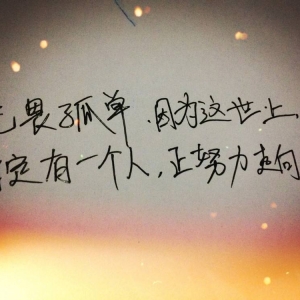 畏孤单,因为这世上,
定有一个人,正努力走向